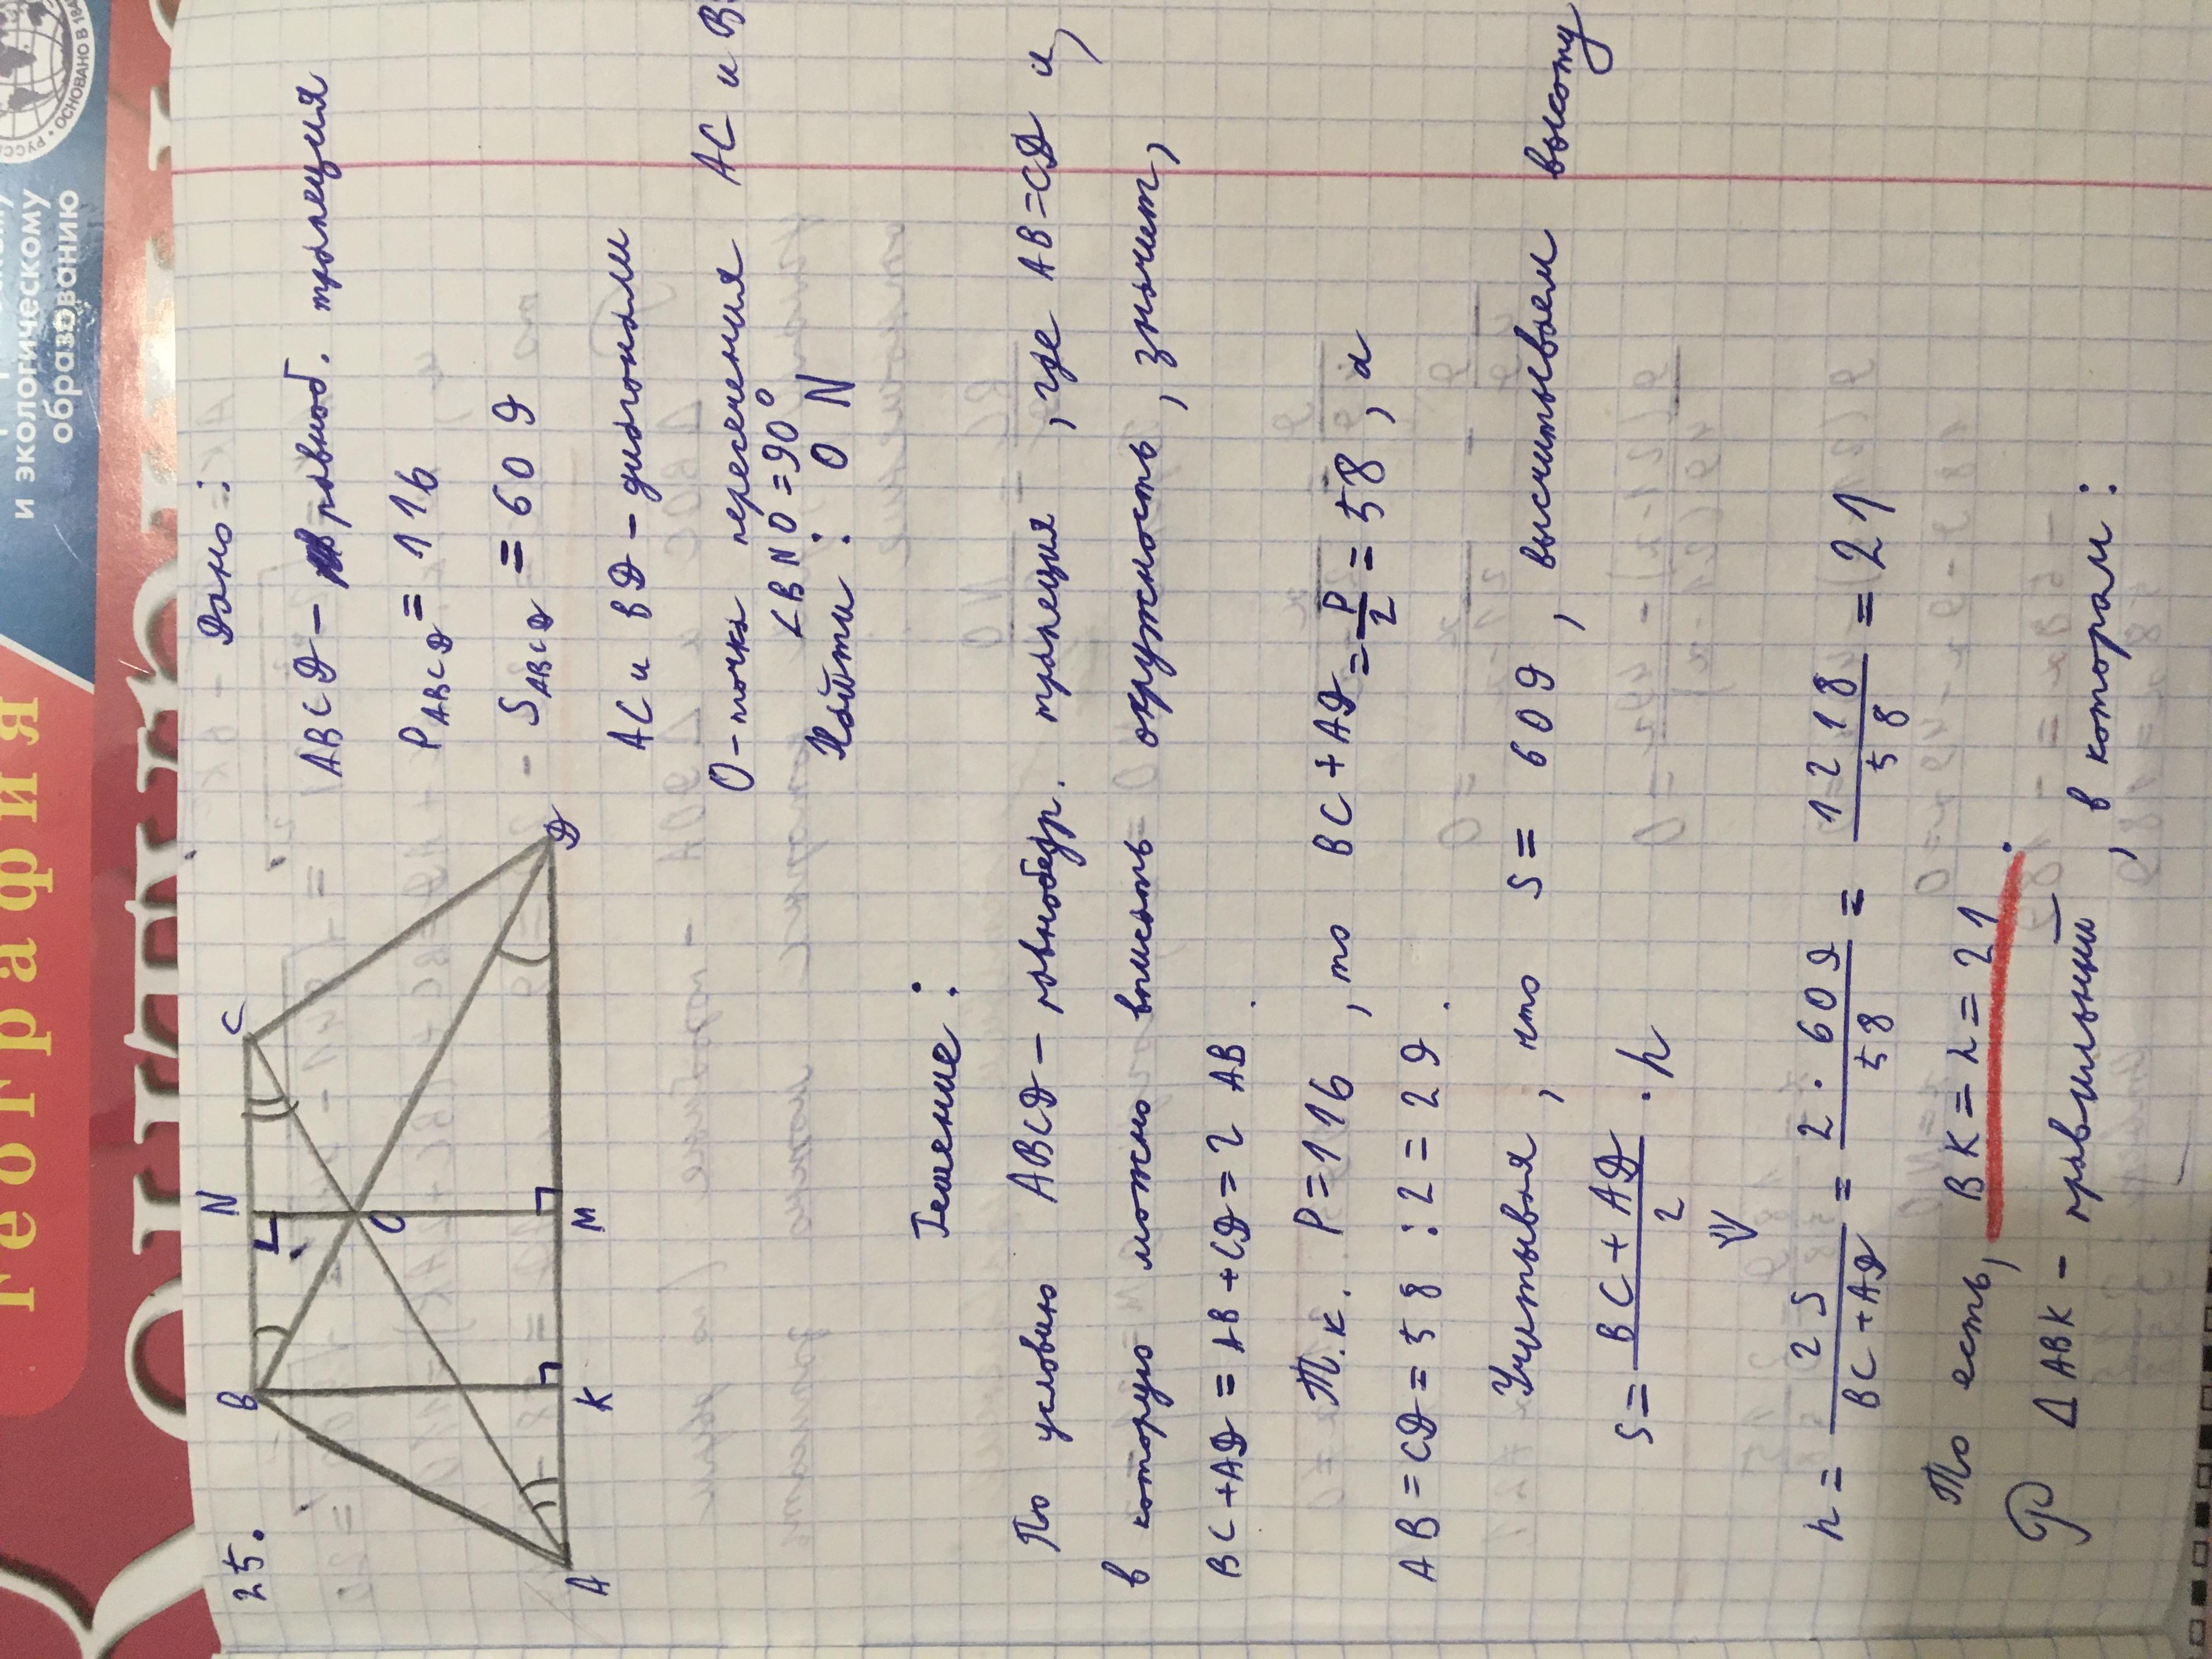 география
и экологическому
образованию
РУССК
ОСНОВАНО В 184
25.
B N C
O
A K M D
Дано:
ABCD – равноб. трапеция
P ABCD = 116
S ABCD = 609
AC и BD – диагонали
O – точка пересечения AC и B
∠BNO = 90°
Найти: ON
Решение:
По условию ABCD – равнобедр. трапеция, где AB = CD и,
в которую можно вписать окружность, значит,
BC + AD = AB + CD = 2 AB.
Т.к. P = 116, то BC + AD = P/2 = 58, а
AB = CD = 58 : 2 = 29.
Учитывая, что S = 609, высчитываем высоту
S = (BC + AD)/2 · h
⇓
h = 2S/(BC + AD) = 2 · 609/58 = 1218/58 = 21
То есть, BK = h = 21.
P ΔABK – правильный, в котором: